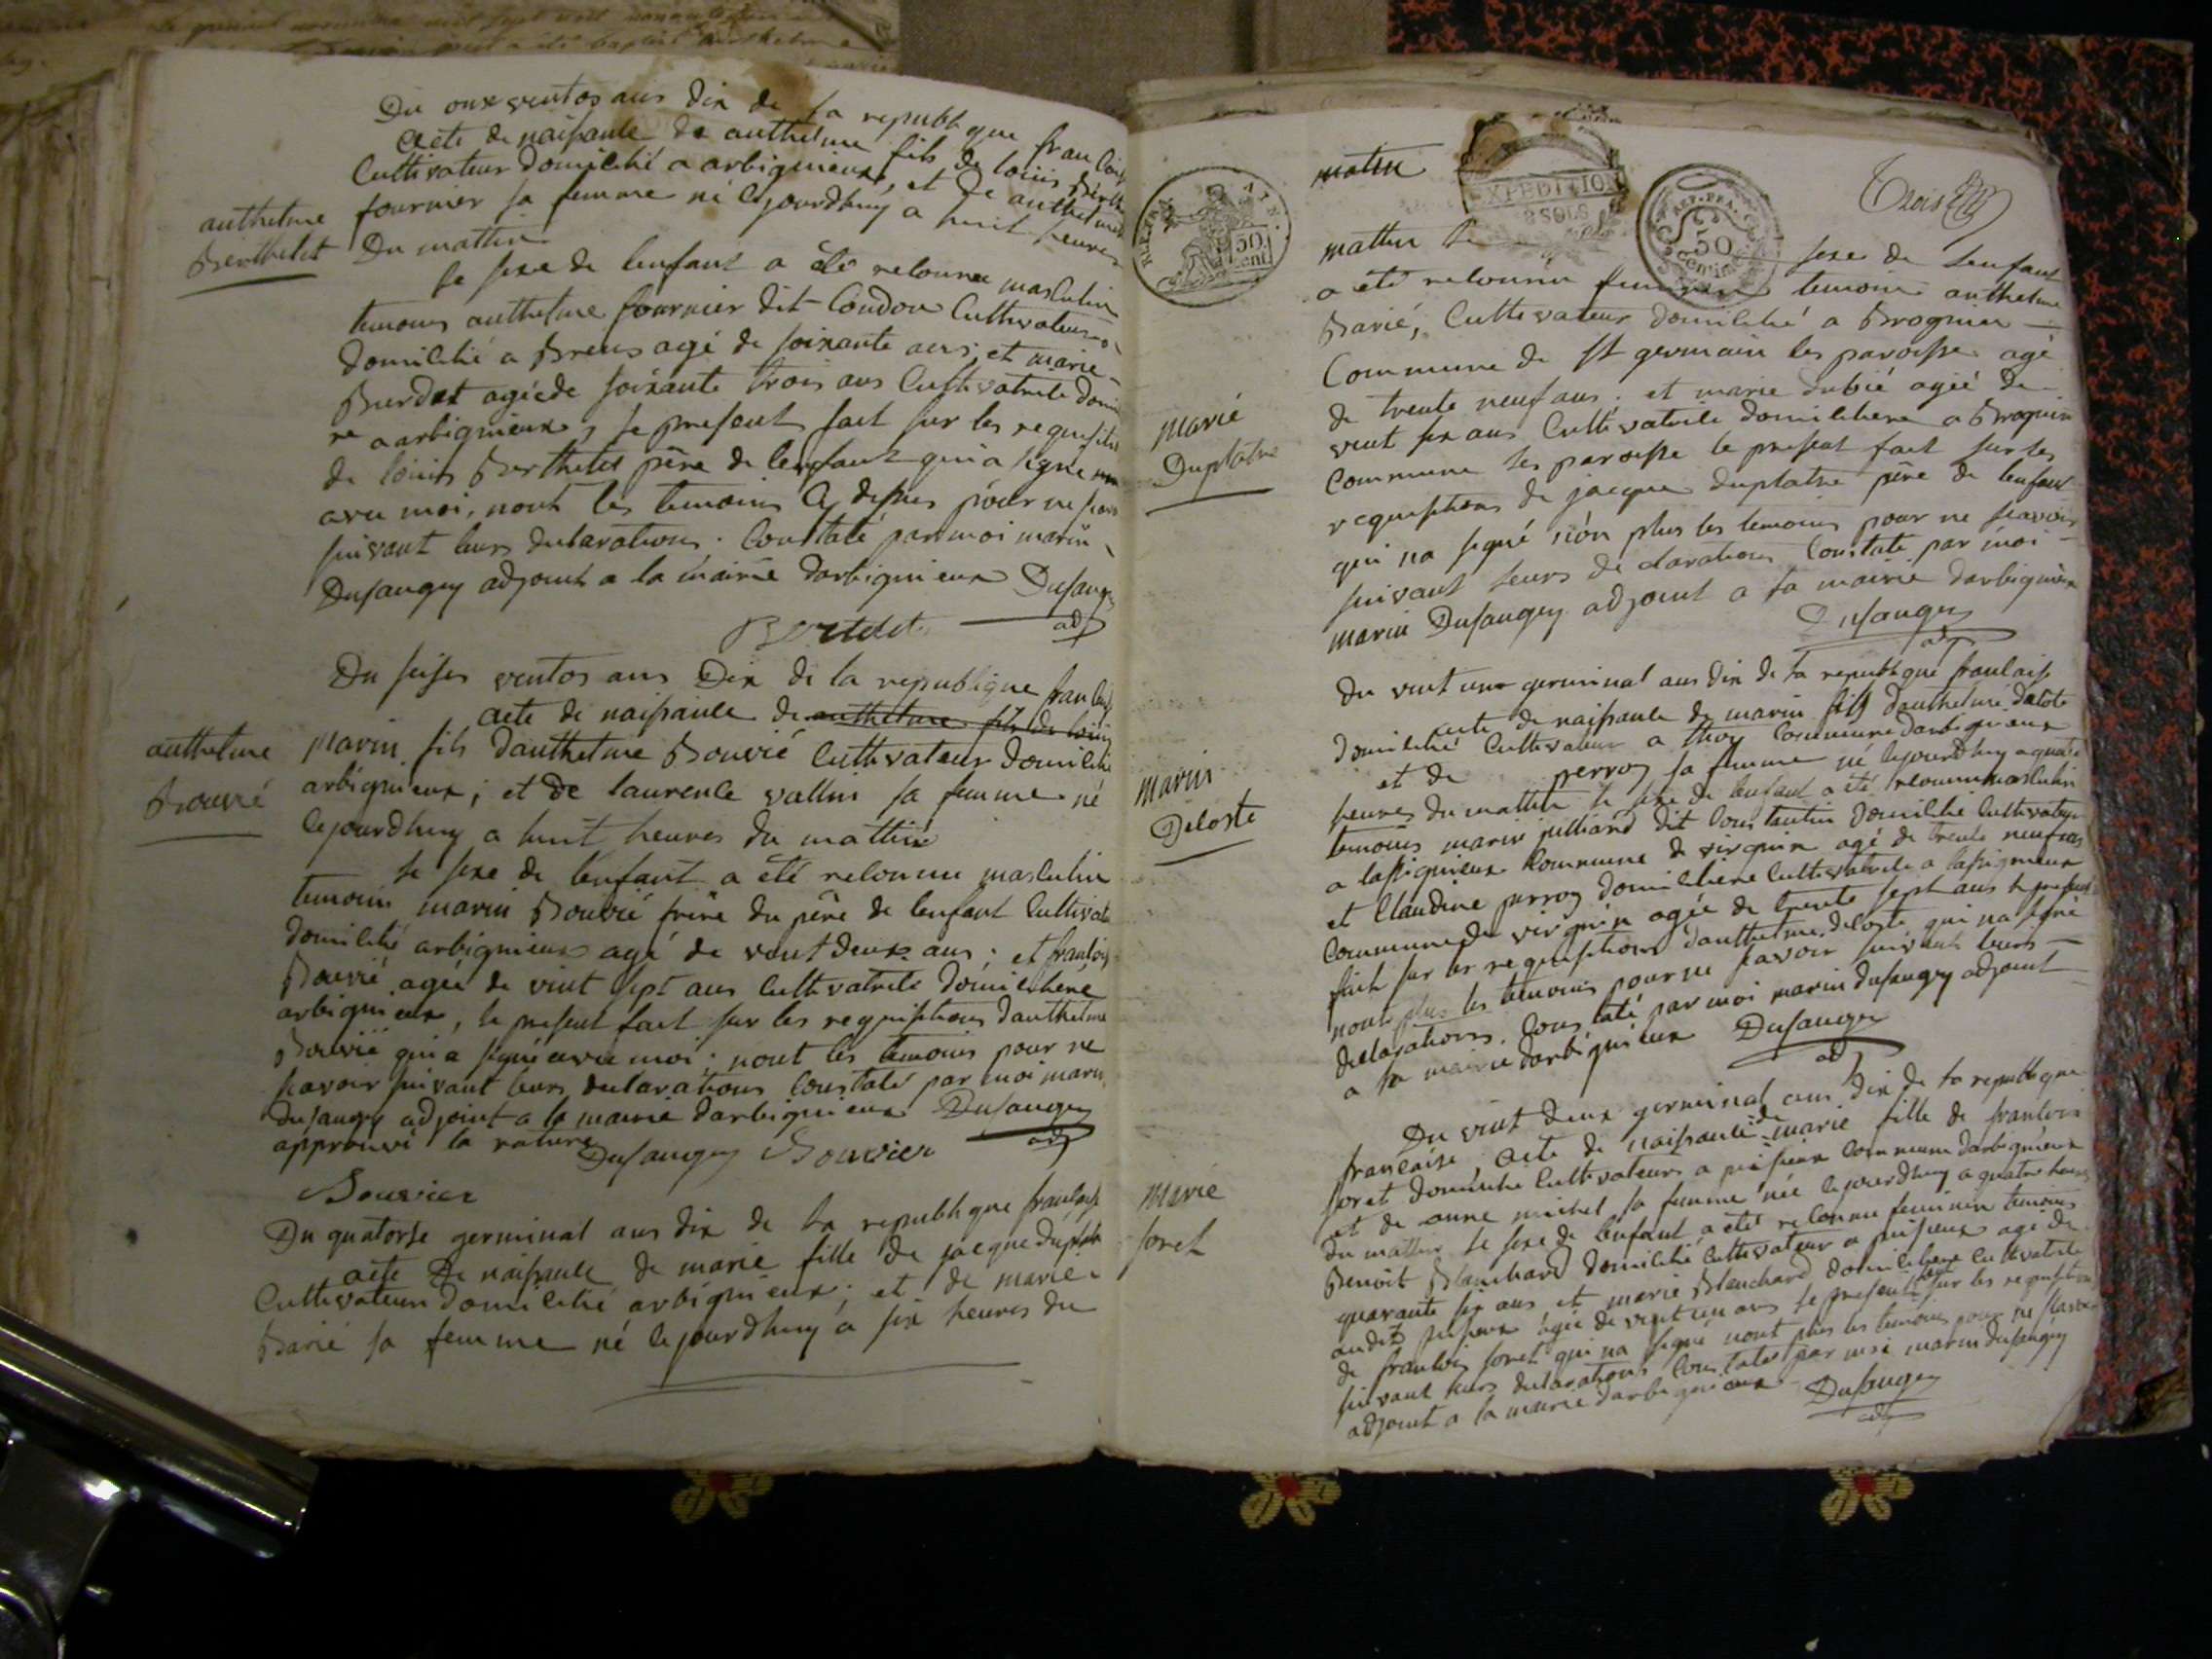 Du onze ventos ans dix de la republique francais
acte de naissance de anthelme fils de loüis Berth
Cultivateur domicilié a arbignieux, et de anthelme
fournier sa femme né cejourdhuy a huit heures
Du mattin
anthelme
Berthelet
le sexe de lenfant a été reconnu masculin
temoins anthelme fournier dit Coudou Cultivateur
domicilié a Brens agé de soixante ans, et marie
Burdet agée de soixante trois ans Cultivatrice domi
re a arbignieux, le present fait sur les requisitio
de loüis Berthelet père de lenfant qui a signé
avec moi, nont les temoins Cy dessus pour ne scav
suivant leurs declarations. Constaté par moi marin
Dusaugey adjoint a la mairie darbignieux Dusaugey
Bertelet adj
Du seises ventos ans Dix de la republique francais
acte de naissance de anthelme fils de loüis
anthelme
Bouvié
marin fils danthelme Bouvié Cultivateur domicilié
arbignieux; et de laurence vallin sa femme né
cejourdhuy a huit heures du mattin
le sexe de lenfant a été reconnu masculin
temoins marin Bouvié frère du père de lenfant Cultivat
domicilié arbignieux agé de vent deux ans; et francois
Bouvié agée de vint sept ans Cultivatrice domicilière
arbignieux, le present fait sur les requisitions danthelme
Bouvié qui a signé avec moi; nont les temoins pour ne
scavoir suivant leurs declarations Constaté par moi marin
Dusaugey adjoint a la mairie darbignieux Dusaugey
approuvé la rature Dusaugey Bouvier adj
Bouvier
Du quatorse germinal ans dix de la republique francaise
acte De naissance de marie fille de jacque duplatr
Cultivateur domicilié arbignieux; et de marie
Barié sa femme né cejourdhuy a six heures du
mattin
EXPEDITION
2 SOLS
REP. FRA.
50
centimes
50
cent.
Trois
mattin le sexe de lenfant
a été reconnu feminin temoins anthelme
Barié, Cultivateur domicilié a Brognin
Commune de St germain les paroisse agé
de trente neuf ans. et marie dubié agée de
vent six ans Cultivatrice domiciliere a Brognin
Commune les paroisse le present fait sur les
requisitions de jacque duplatre père de lenfant
qui na signé non plus les temoins pour ne scavoir
suivant leurs declarations Constaté par moi
marin Dusaugey adjoint a la mairie darbignieux
Dusaugey
adj
marié
Duplatre
Du vint une germinal ans dix de la republique francais
acte de naissance de marin fils danthelme Delote
domicilié Cultivateur a thoy Commune darbignieux
et de perroy sa femme né cejourdhuy a quatre
heures du mattin le sexe de lenfant a été reconnu masculin
temoins marin julliand dit Constantin domicilié Cultivateur
a lassignieux Commune de virignin agé de trente neuf ans
et Claudine perroy domiciliere Cultivatrice a lassignieux
Commune de virignin agée de trente sept ans le present
fait sur les requisitions danthelme Deloste qui na signé
nont plus les temoins pour ne scavoir suivant leurs
declarations. Constaté par moi marin dusaugey adjoint
a la mairie darbignieux Dusaugey
adj
marin
Deloste
Du vint deux germinal ans dix de la republique
française, acte de naissance de marie fille de francois
foret domicilié Cultivateur a peisieux Commune darbignieux
et de anne michel sa femme née cejourdhuy a quatre heures
du mattin le sexe de lenfant a été reconnu feminin temoins
Benoit Blanchard domicilié Cultivateur a peisieux agé de
quarante six ans et marie Blanchard domiciliere Cultivatrice
audit peisieux agée de vint un ans le present fait sur les requisitions
de francois foret qui na signé nont plus les temoins pour ne scavoir
suivant leurs declarations Constaté par moi marin dusaugey
adjoint a la mairie darbignieux Dusaugey
adj
marie
foret